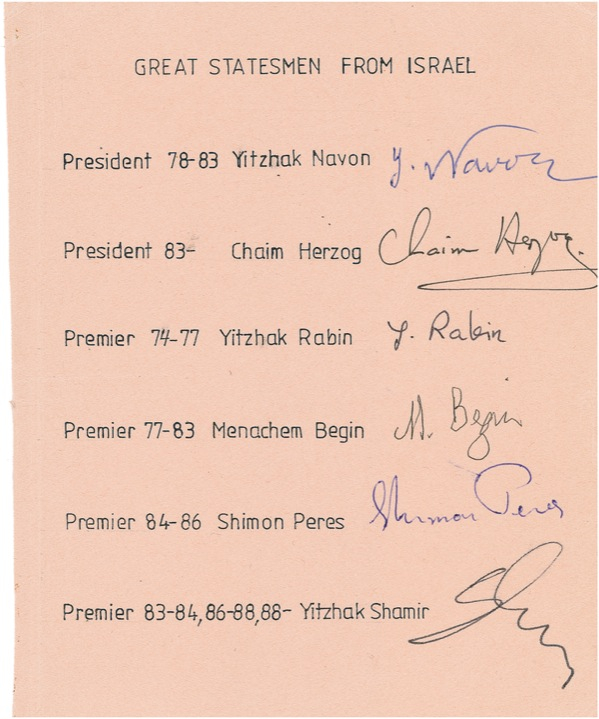 GREAT STATESMEN FROM ISRAEL
President 78-83 Yitzhak Navon Y. Navon
President 83- Chaim Herzog Chaim Herzog.
Premier 74-77 Yitzhak Rabin Y. Rabin
Premier 77-83 Menachem Begin M. Begin
Premier 84-86 Shimon Peres Shimon Peres
Premier 83-84,86-88,88- Yitzhak Shamir